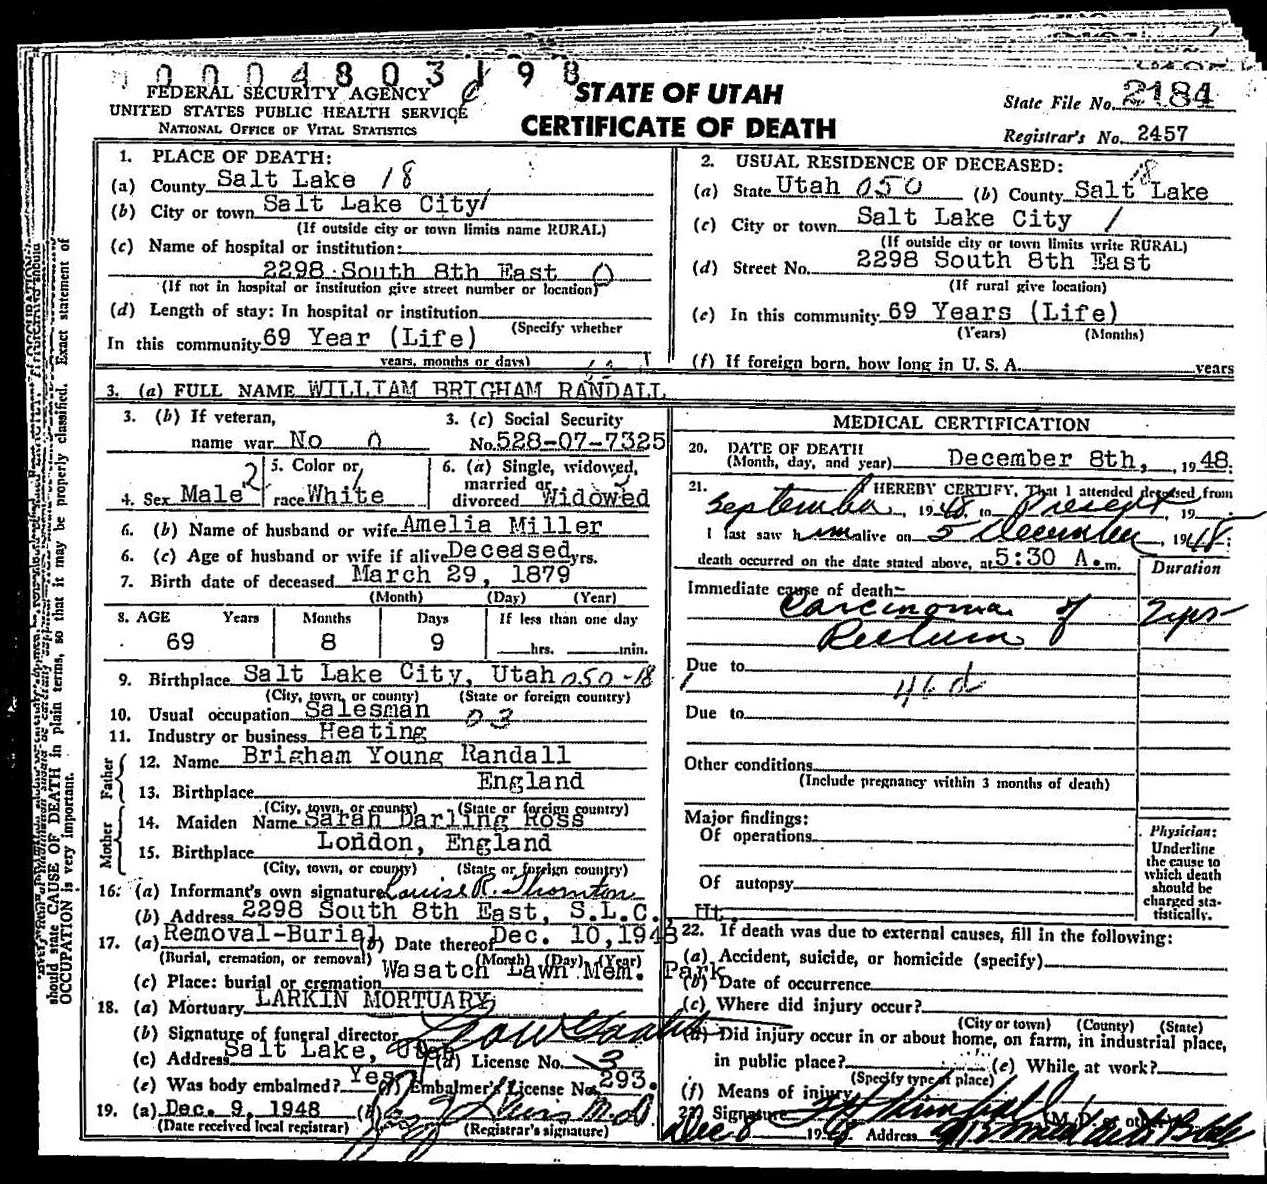 0004803198
FEDERAL SECURITY AGENCY
UNITED STATES PUBLIC HEALTH SERVICE
NATIONAL OFFICE OF VITAL STATISTICS
STATE OF UTAH
CERTIFICATE OF DEATH
State File No. 2184
Registrar's No. 2457
1. PLACE OF DEATH:
(a) County Salt Lake 18
(b) City or town Salt Lake City /
(If outside city or town limits name RURAL)
(c) Name of hospital or institution:
2298 South 8th East 0
(If not in hospital or institution give street number or location)
(d) Length of stay: In hospital or institution
(Specify whether
In this community 69 Year (Life)
years, months or days)
2. USUAL RESIDENCE OF DECEASED:
18
(a) State Utah 050 (b) County Salt Lake
(c) City or town Salt Lake City /
(If outside city or town limits write RURAL)
(d) Street No. 2298 South 8th East
(If rural give location)
(e) In this community 69 Years (Life)
(Years) (Months)
(f) If foreign born, how long in U. S. A. years
3. (a) FULL NAME WILLIAM BRIGHAM RANDALL
3. (b) If veteran,
name war No 0
3. (c) Social Security
No. 528-07-7325
4. Sex Male 2
5. Color or
race White /
6. (a) Single, widowed,
married or
divorced Widowed
6. (b) Name of husband or wife Amelia Miller
6. (c) Age of husband or wife if alive Deceased yrs.
7. Birth date of deceased March 29, 1879
(Month) (Day) (Year)
8. AGE Years Months Days If less than one day
69 8 9 hrs. min.
9. Birthplace Salt Lake City, Utah 050-18
(City, town, or county) (State or foreign country)
10. Usual occupation Salesman 03
11. Industry or business Heating
Father
12. Name Brigham Young Randall
13. Birthplace England
(City, town, or county) (State or foreign country)
Mother
14. Maiden Name Sarah Darling Ross
15. Birthplace London, England
(City, town, or county) (State or foreign country)
16. (a) Informant's own signature Louise R. Thornton
(b) Address 2298 South 8th East, S.L.C., Ut.
17. (a) Removal-Burial (b) Date thereof Dec. 10,1948
(Burial, cremation, or removal) (Month) (Day) (Year)
(c) Place: burial or cremation Wasatch Lawn Mem. Park
18. (a) Mortuary LARKIN MORTUARY
(b) Signature of funeral director
(c) Address Salt Lake, Utah (d) License No. 3
(e) Was body embalmed? Yes (f) Embalmer's License No. 293.
19. (a) Dec. 9, 1948 (b)
(Date received local registrar) (Registrar's signature)
MEDICAL CERTIFICATION
20. DATE OF DEATH
(Month, day, and year) December 8th, 1948.
21. I HEREBY CERTIFY, That I attended deceased from
September, 1948 to Present, 19
I last saw him alive on 5 December, 1948:
death occurred on the date stated above, at 5:30 A.m.
Duration
Immediate cause of death—
Carcinoma of 2 yrs
Rectum
Due to
46d
Due to
Other conditions
(Include pregnancy within 3 months of death)
Major findings:
Of operations
Of autopsy
Physician:
Underline
the cause to
which death
should be
charged sta-
tistically.
22. If death was due to external causes, fill in the following:
(a) Accident, suicide, or homicide (specify)
(b) Date of occurrence
(c) Where did injury occur?
(City or town) (County) (State)
(d) Did injury occur in or about home, on farm, in industrial place,
in public place? (e) While at work?
(Specify type of place)
(f) Means of injury
23. Signature (M. D. or other)
Dec 8 1948 Address
should state CAUSE OF DEATH in plain terms, so that it may be properly classified. Exact statement of
OCCUPATION is very important.